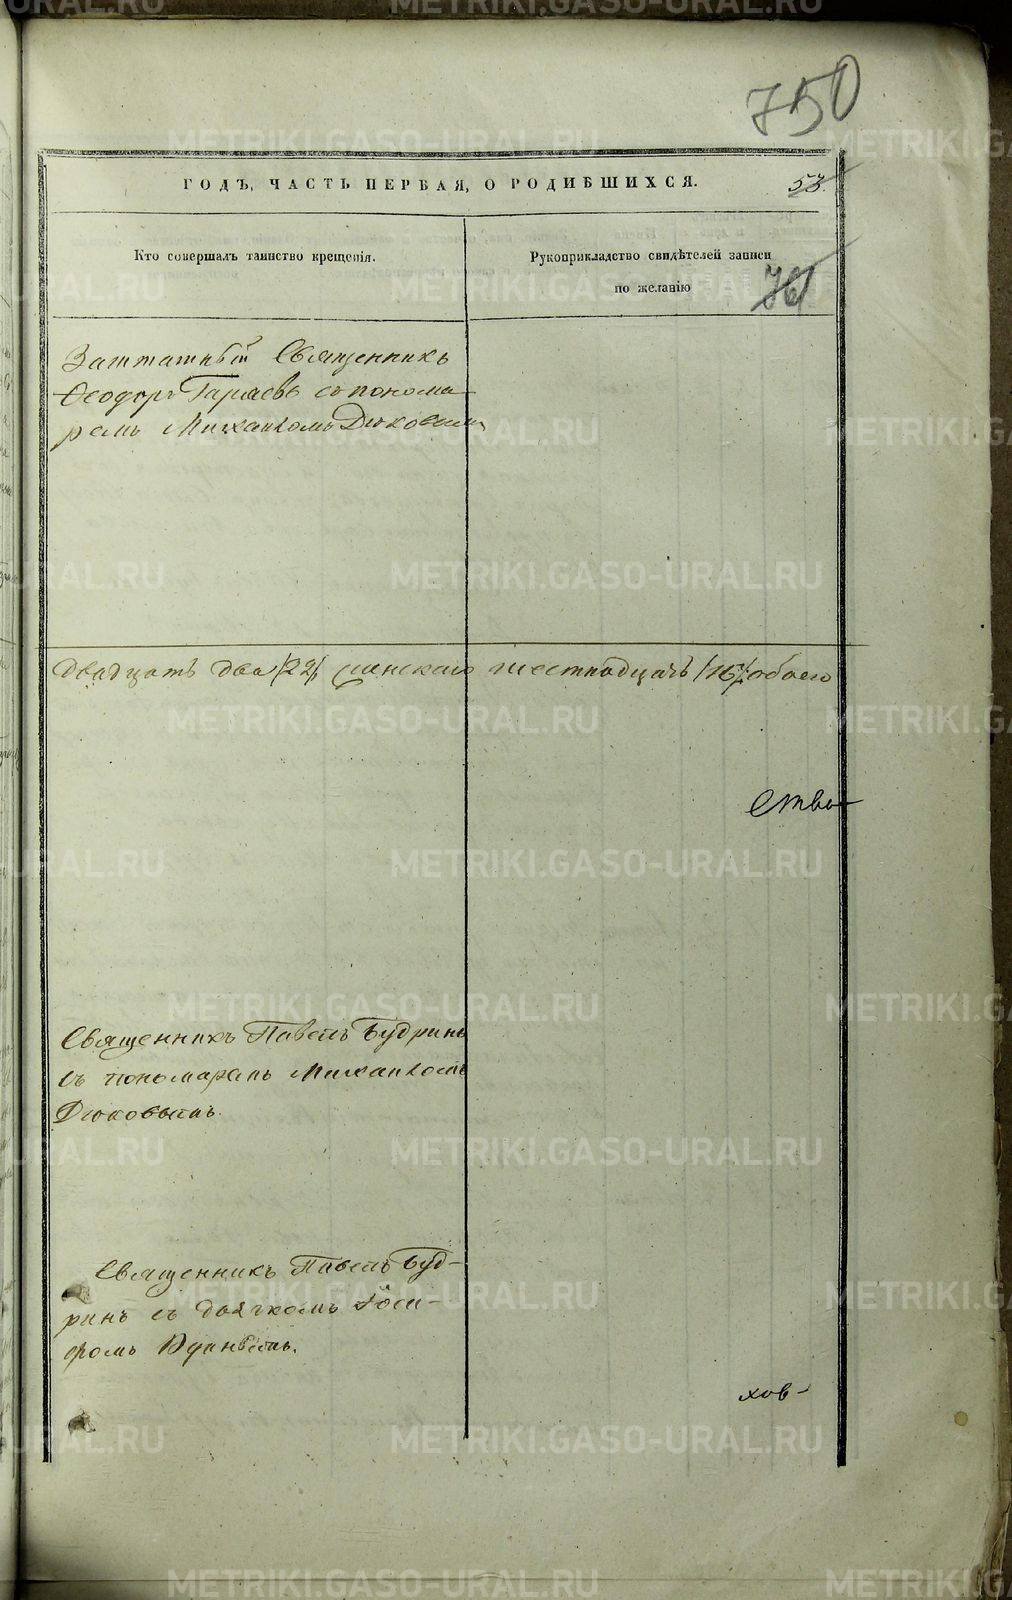 750
ГОДЪ, ЧАСТЬ ПЕРВАЯ, О РОДИВШИХСЯ.
53.
Кто совершалъ таинство крещенія.
Рукоприкладство свидѣтелей записи
по желанію
76
Заштатный Священникъ
Ѳеодоръ съ понома-
ремъ Михаиломъ Дюковым
Двадцать два /22/ женскаго шестнадцать /16/ обоего
ства
Священникъ Павелъ Будринъ
съ пономаремъ Михаиломъ
Дюковымъ.
Священникъ Павелъ Буд-
ринъ съ дьячкомъ
Юдинымъ.
хов-
METRIKI.GASO-URAL.RU